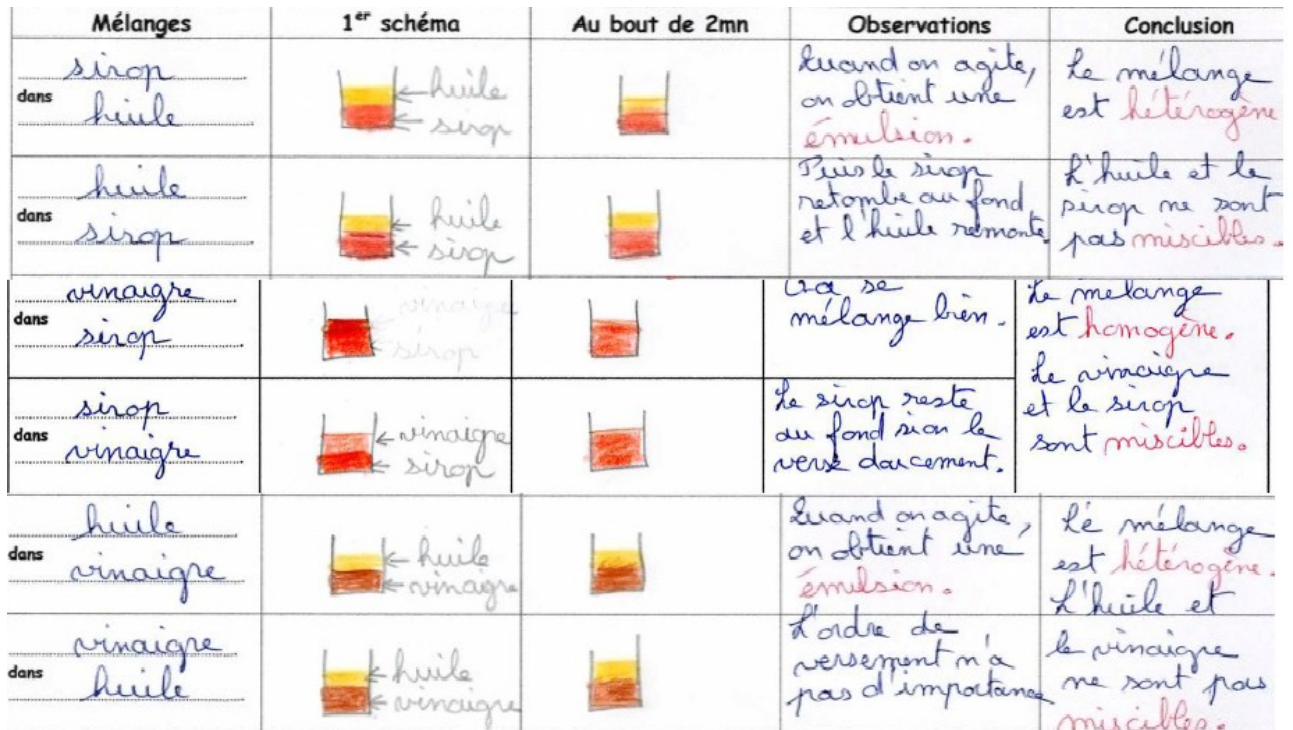 Mélanges
1er schéma
Au bout de 2mn
Observations
Conclusion
sirop
dans
huile
← huile
← sirop
Quand on agite,
on obtient une
émulsion.
Le mélange
est hétérogène
huile
dans
sirop
← huile
← sirop
Puis le sirop
retombe au fond
et l'huile remonte.
L'huile et le
sirop ne sont
pas miscibles.
vinaigre
dans
sirop
vinaigre
sirop
Ça se
mélange bien.
Le mélange
est homogène.
Le vinaigre
et le sirop
sont miscibles.
sirop
dans
vinaigre
← vinaigre
← sirop
Le sirop reste
au fond si on le
verse doucement.
huile
dans
vinaigre
← huile
← vinaigre
Quand on agite,
on obtient une
émulsion.
Le mélange
est hétérogène.
L'huile et
le vinaigre
ne sont pas
miscibles.
vinaigre
dans
huile
← huile
← vinaigre
L'ordre de
versement n'a
pas d'importance